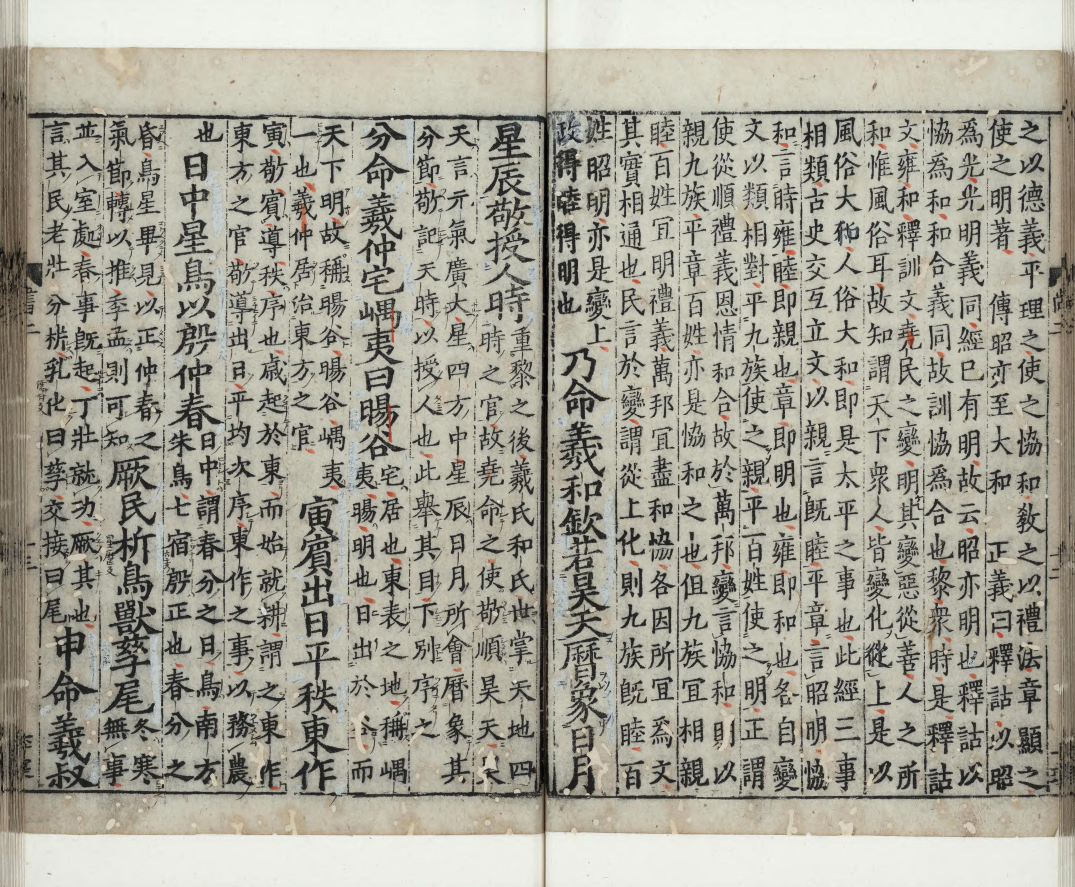 之以德義平理之使之協和敎之以禮法章顯之
使之明著 傳昭亦至大和 正義曰釋詁以昭
為光光明義同經已有明故云昭亦明也釋詁以
協為和和合義同故訓協為合也黎衆時是釋詁
文雍和釋訓文堯民之變明其變惡從善人之所
和惟風俗耳故知謂天下衆人皆變化從上是以
風俗大和人俗大和即是太平之事也此經三事
相類古史交互立文以親言旣睦平章言昭明協
和言時雍睦即親也章即明也雍即和也各自變
文以類相對平九族使之親平百姓使之明正謂
使從順禮義恩情和合故於萬邦變言協和明以
親九族平章百姓亦是協和之也但九族宜相親
睦百姓冝明禮義萬邦冝盡和協各因所冝為文
其實相通也民言於變謂從上化則九族旣睦百
姓昭明亦是變上
故得睦得明也
乃命羲和欽若昊天曆象日月
星辰敬授人時
重黎之後羲氏和氏世掌天地四
時之官故堯命之使敬順昊天昊
天言元氣廣大星四方中星辰日月所會曆象其
分節敬記天時以授人也此舉其目下別序之
分命羲仲宅嵎夷曰暘谷
宅居也東表之地稱嵎
夷暘明也日出於谷而
天下明故稱暘谷暘谷嵎夷
一也羲仲居治東方之官
寅賓出日平秩東作
寅敬賓導秩序也歲起於東而始就耕謂之東作
東方之官敬導出日平均次序東作之事以務農
也
日中星鳥以殷仲春
日中謂春分之日鳥南方
朱鳥七宿殷正也春分之
昏鳥星畢見以正仲春之
氣節轉以推季孟則可知
厥民析鳥獸孳尾
冬寒
無事
並入室處春事旣起丁壯就功厥其也
言其民老壯分析乳化曰孳交接曰尾
申命羲叔